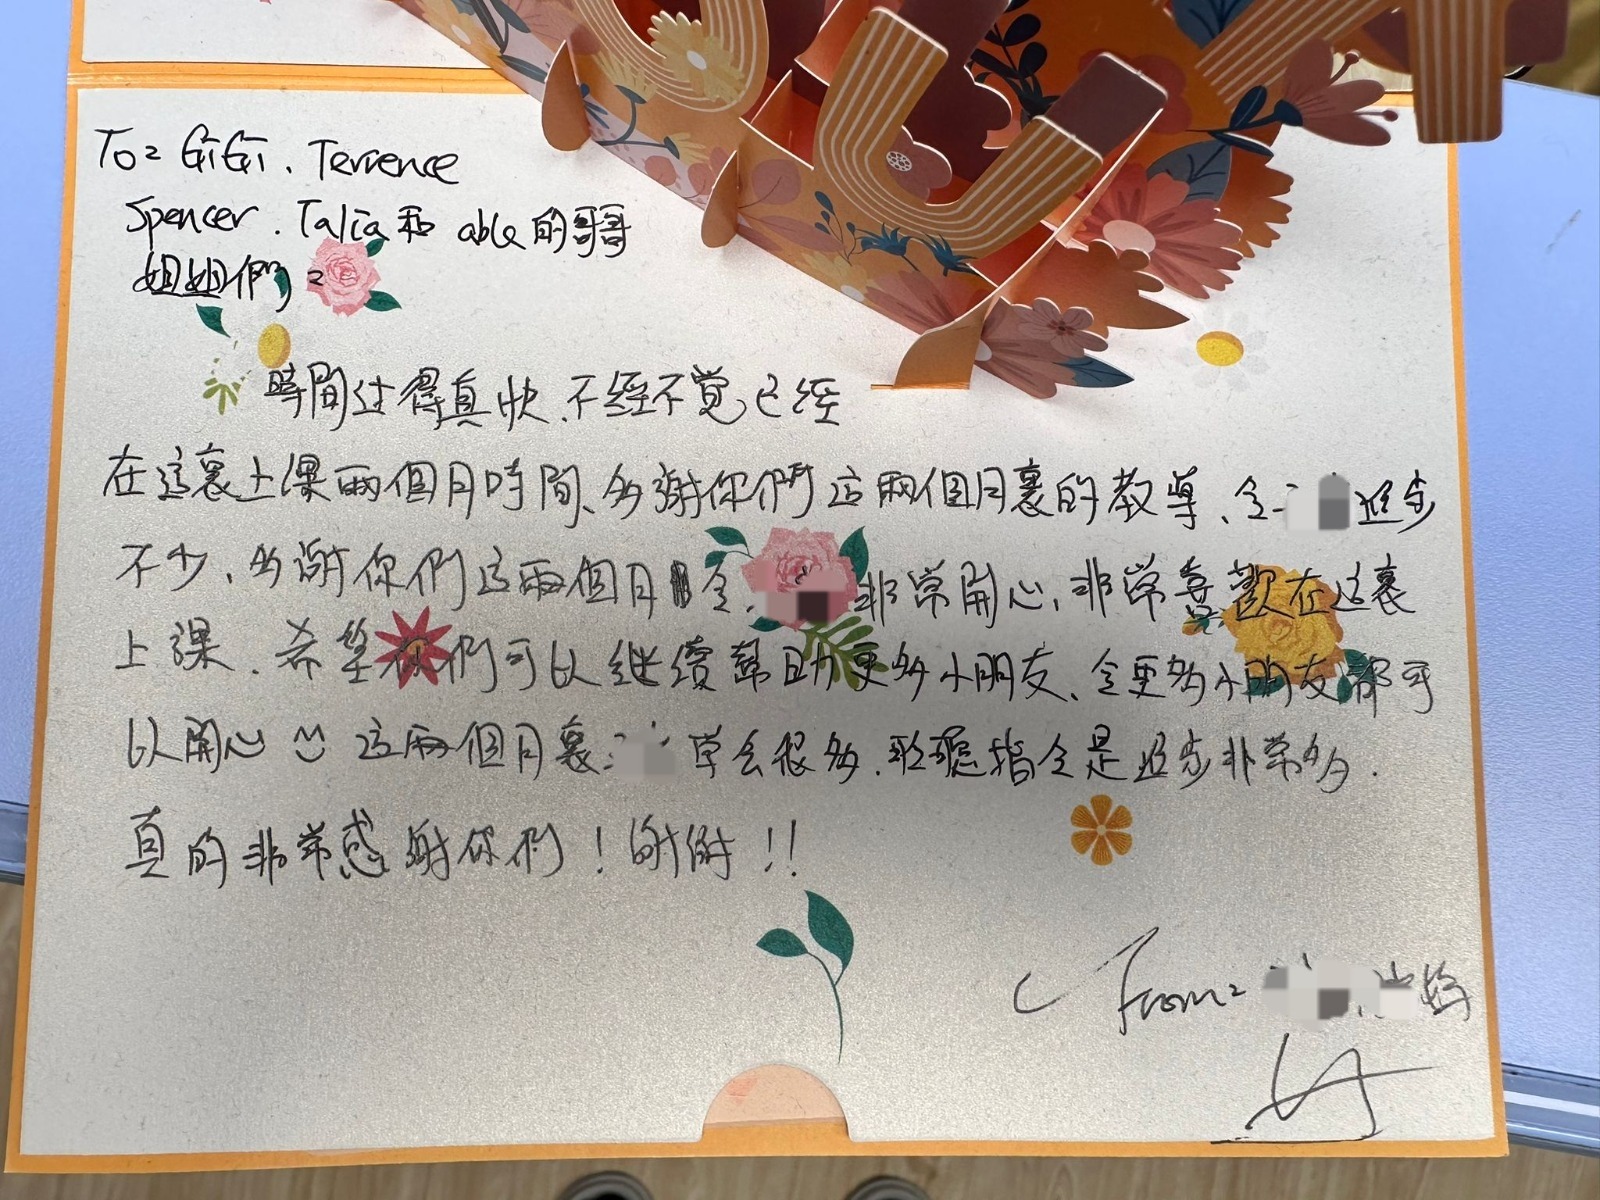 To: GiGi. Terrence
Spencer. Talia 和 able 的哥哥
姐姐們:
時間过得真快、不經不覚已经
在這裏上课兩個月時間、多謝你們這兩個月裏的教導、令 進步
不少、多謝你們這兩個月令 非常開心、非常喜歡在這裏
上課、希望你們可以继續幫助更多小朋友、令更多小朋友都可
以開心 这兩個月裏 学会很多、聽指令是進步非常多.
真的非常感謝你們！謝謝!!
From: